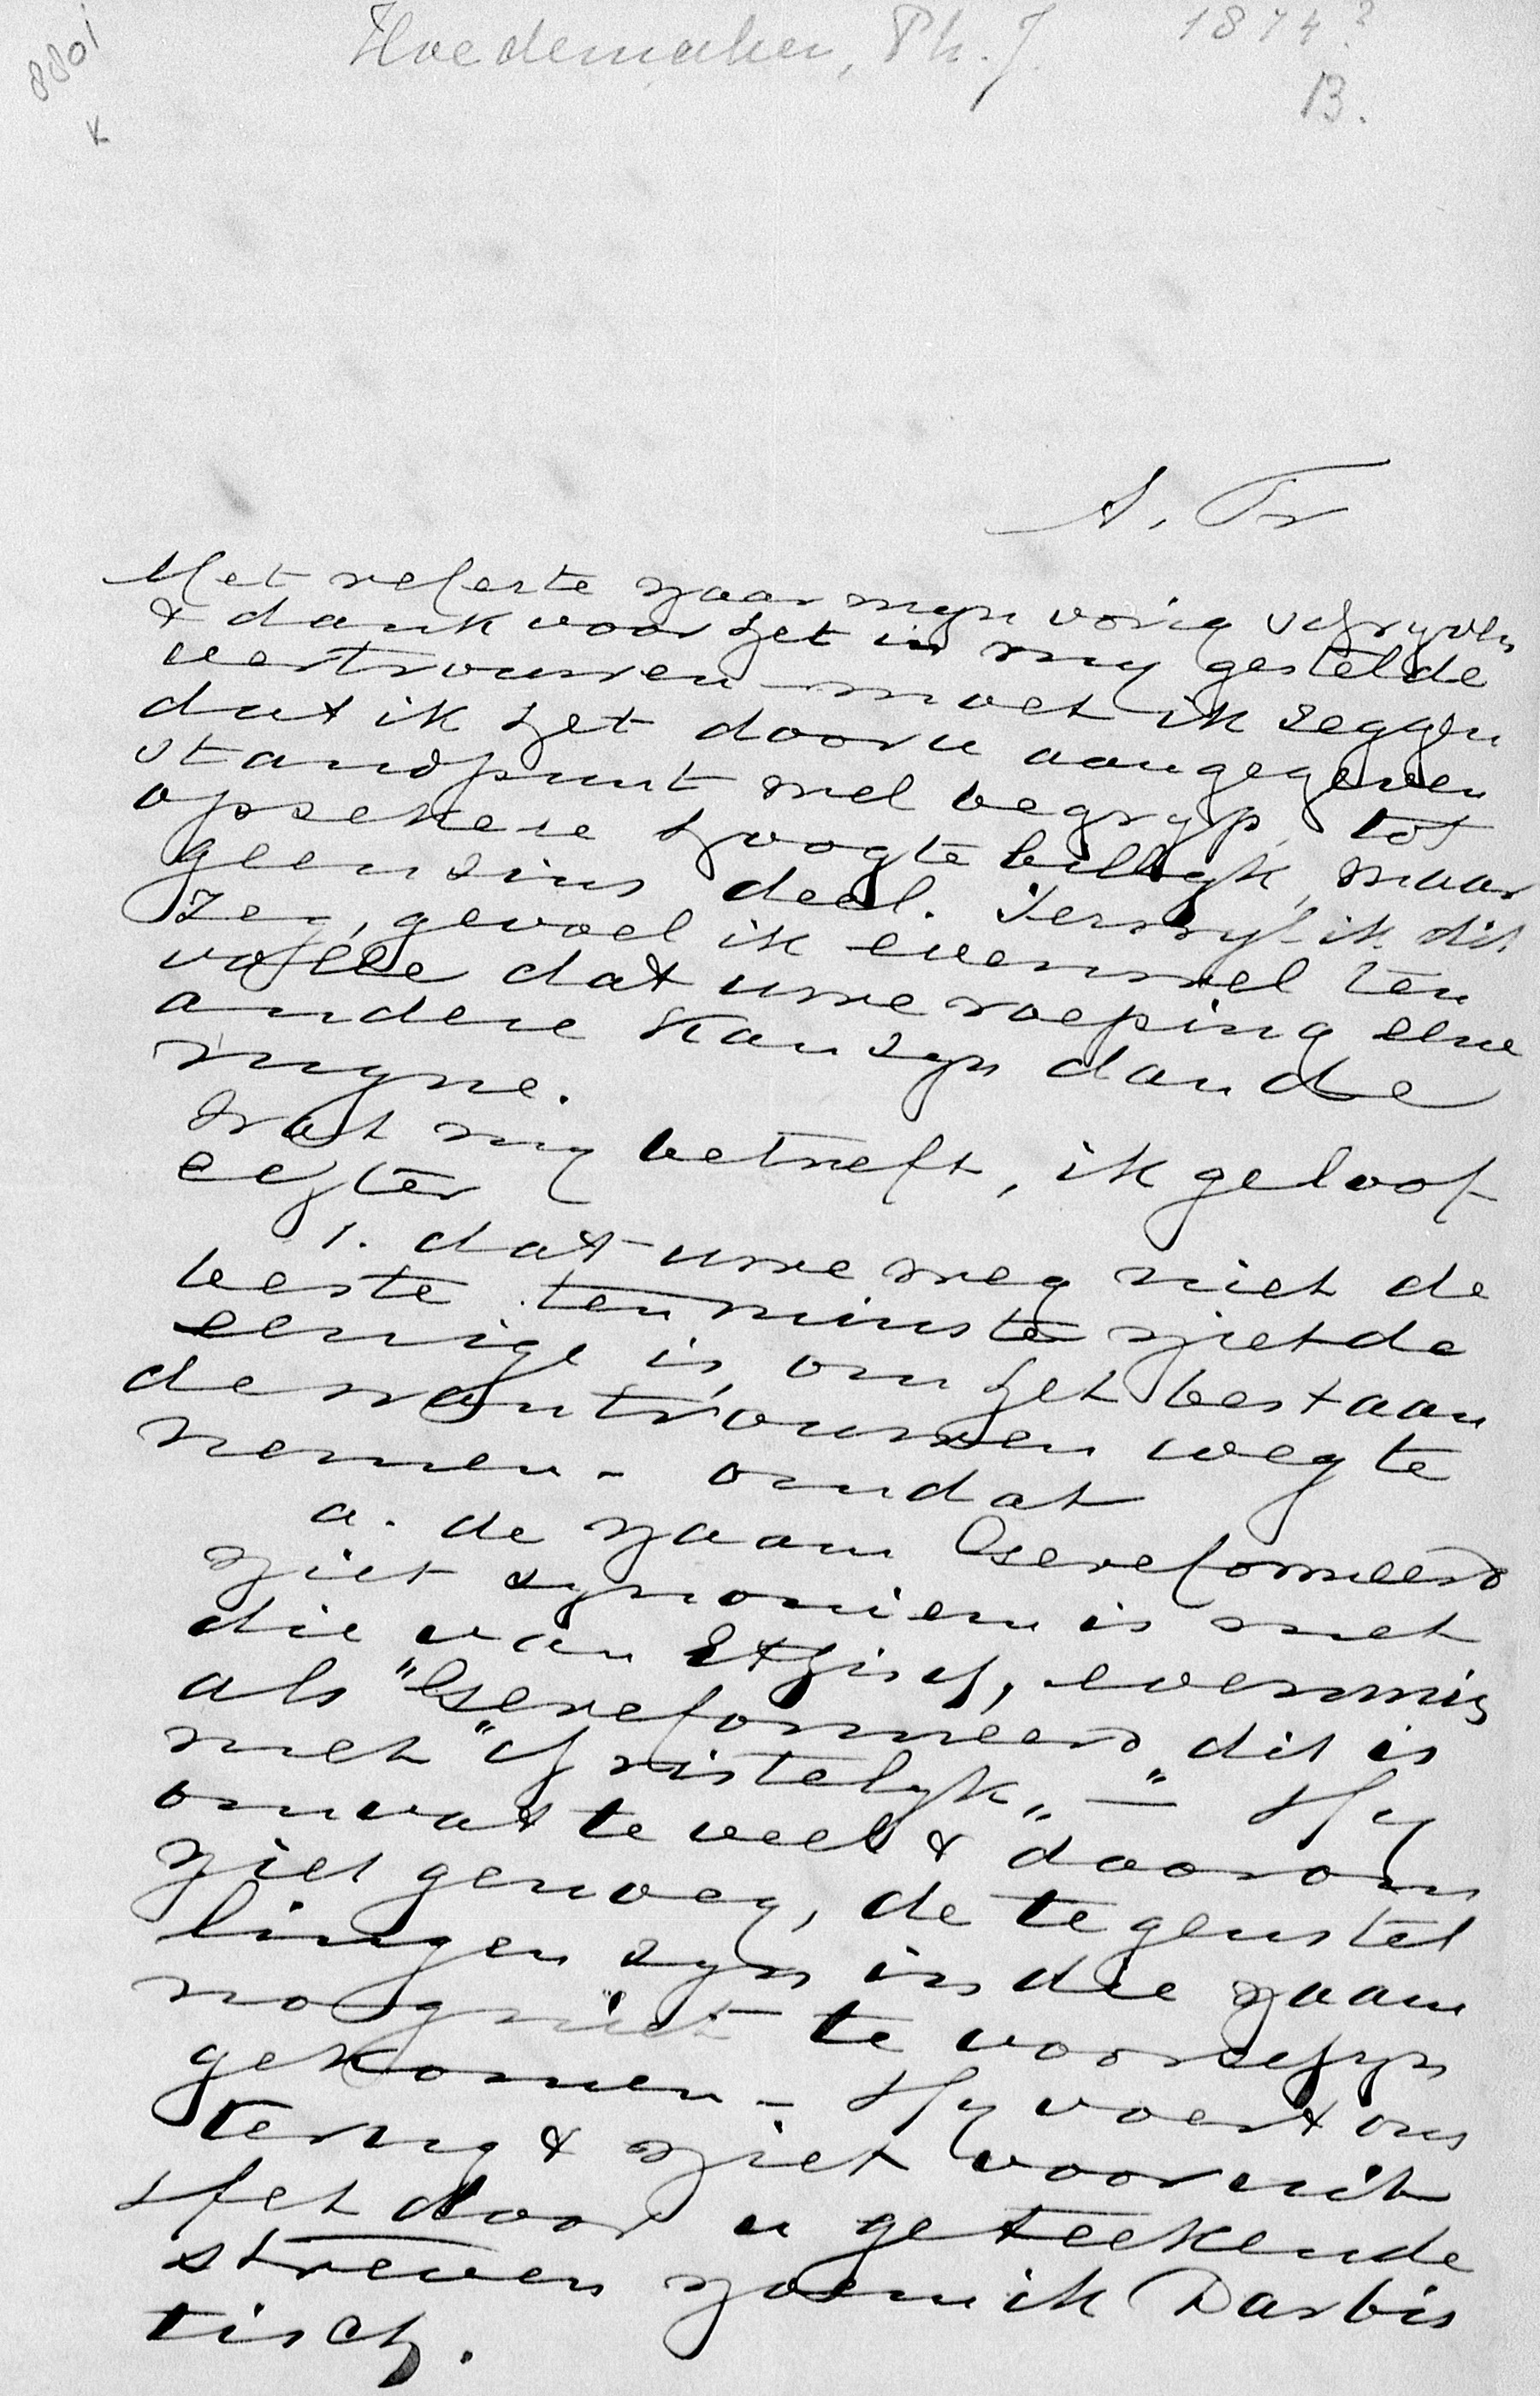 8801
K
Hoedemaker, Ph. J. 1874?
B.
A. Fr
Met referte naar myn vorig schryven
& dank voor het in my gestelde
vertrouwen moet ik zeggen
dat ik het door u aangegeven
standpunt wel begryp, tot
op zekere hoogte billyk, maar
geenzins deel. Terwyl ik dit
zeg, gevoel ik evenwel ten
volle dat uwe roeping eene
andere kan zyn dan de
myne.
Wat my betreft, ik geloof
echter
1. dat uwe weg niet de
beste ten minste niet de
eenige is, om het bestaan
de wantrouwen weg te
nemen - omdat
a. de naam Gereformeerd
niet synoniem is met
die van Ethisch, evenmin
als "Gereformeerd" dit is
met "Christelyk" — Hy
omvat te veel & daarom
niet genoeg, de tegenstel
lingen zyn in die naam
nog niet te voorschyn
gekomen - Hy voert ons
terug & niet vooruit
Het door u geteekende
streven noem ik Darbis
tisch.